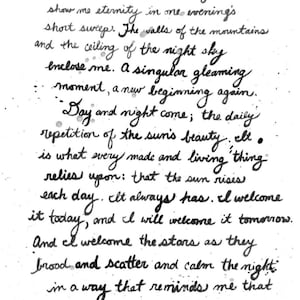 show me eternity in one evening's
short sweep. The walls of the mountains
and the ceiling of the night sky
enclose me. A singular gleaming
moment, a new beginning again.
Day and night come; the daily
repetition of the sun's beauty. It
is what every made and living thing
relies upon: that the sun rises
each day. It always has. I welcome
it today, and I will welcome it tomorrow.
And I welcome the stars as they
brood and scatter and calm the night
in a way that reminds me that